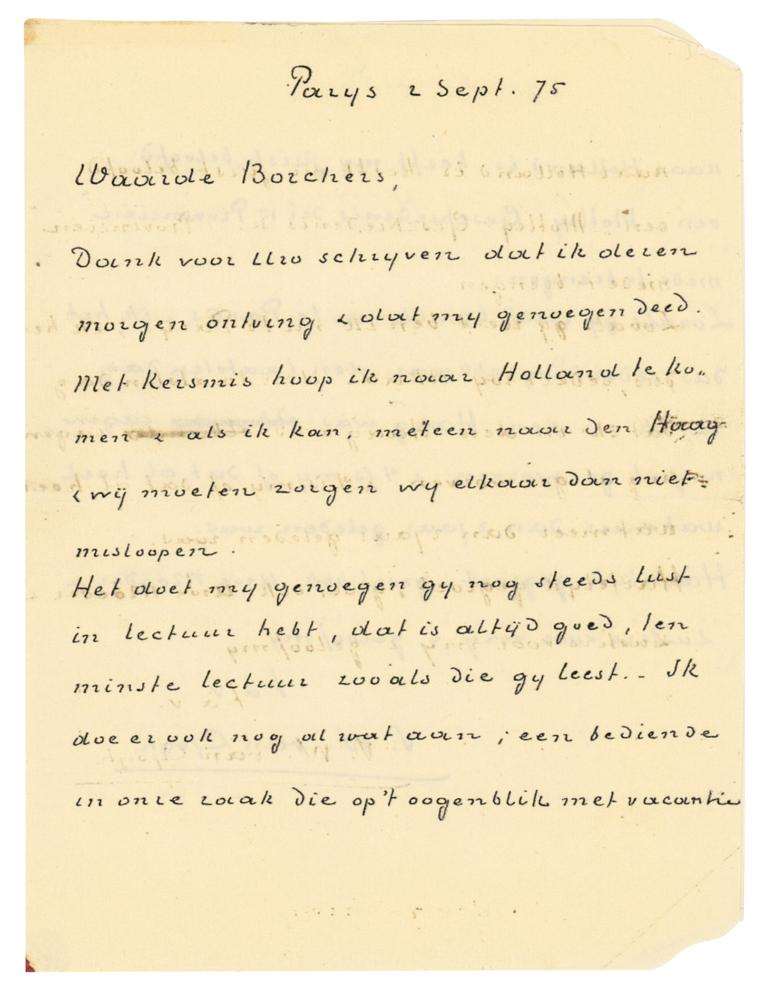 Parys 2 Sept. 75
Waarde Borchers,
Dank voor Uw schryven dat ik dezen
morgen ontving & dat my genoegen deed.
Met Kersmis hoop ik naar Holland te ko„
men & als ik kan, meteen naar den Haag
& wij moeten zorgen wy elkaar dan niet
misloopen.
Het doet my genoegen gy nog steeds lust
in lectuur hebt, dat is altijd goed, ten
minste lectuur zooals die gy leest. – Ik
doe er ook nog al wat aan; een bediende
in onze zaak die op 't oogenblik met vacantie